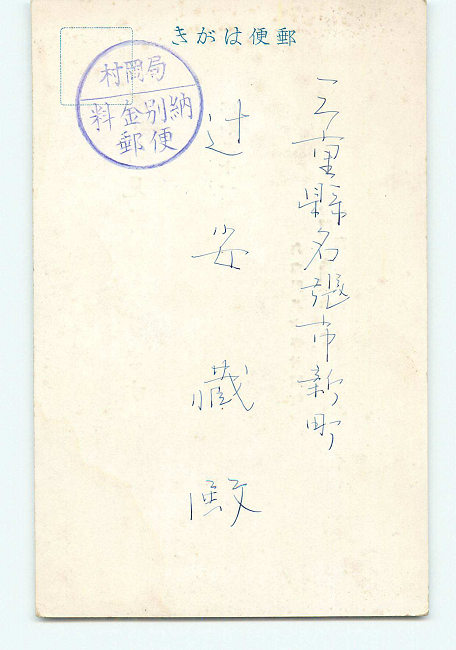 郵便はがき
村岡局
料金別納
郵便
三重縣名張市新町
辻安藏殿